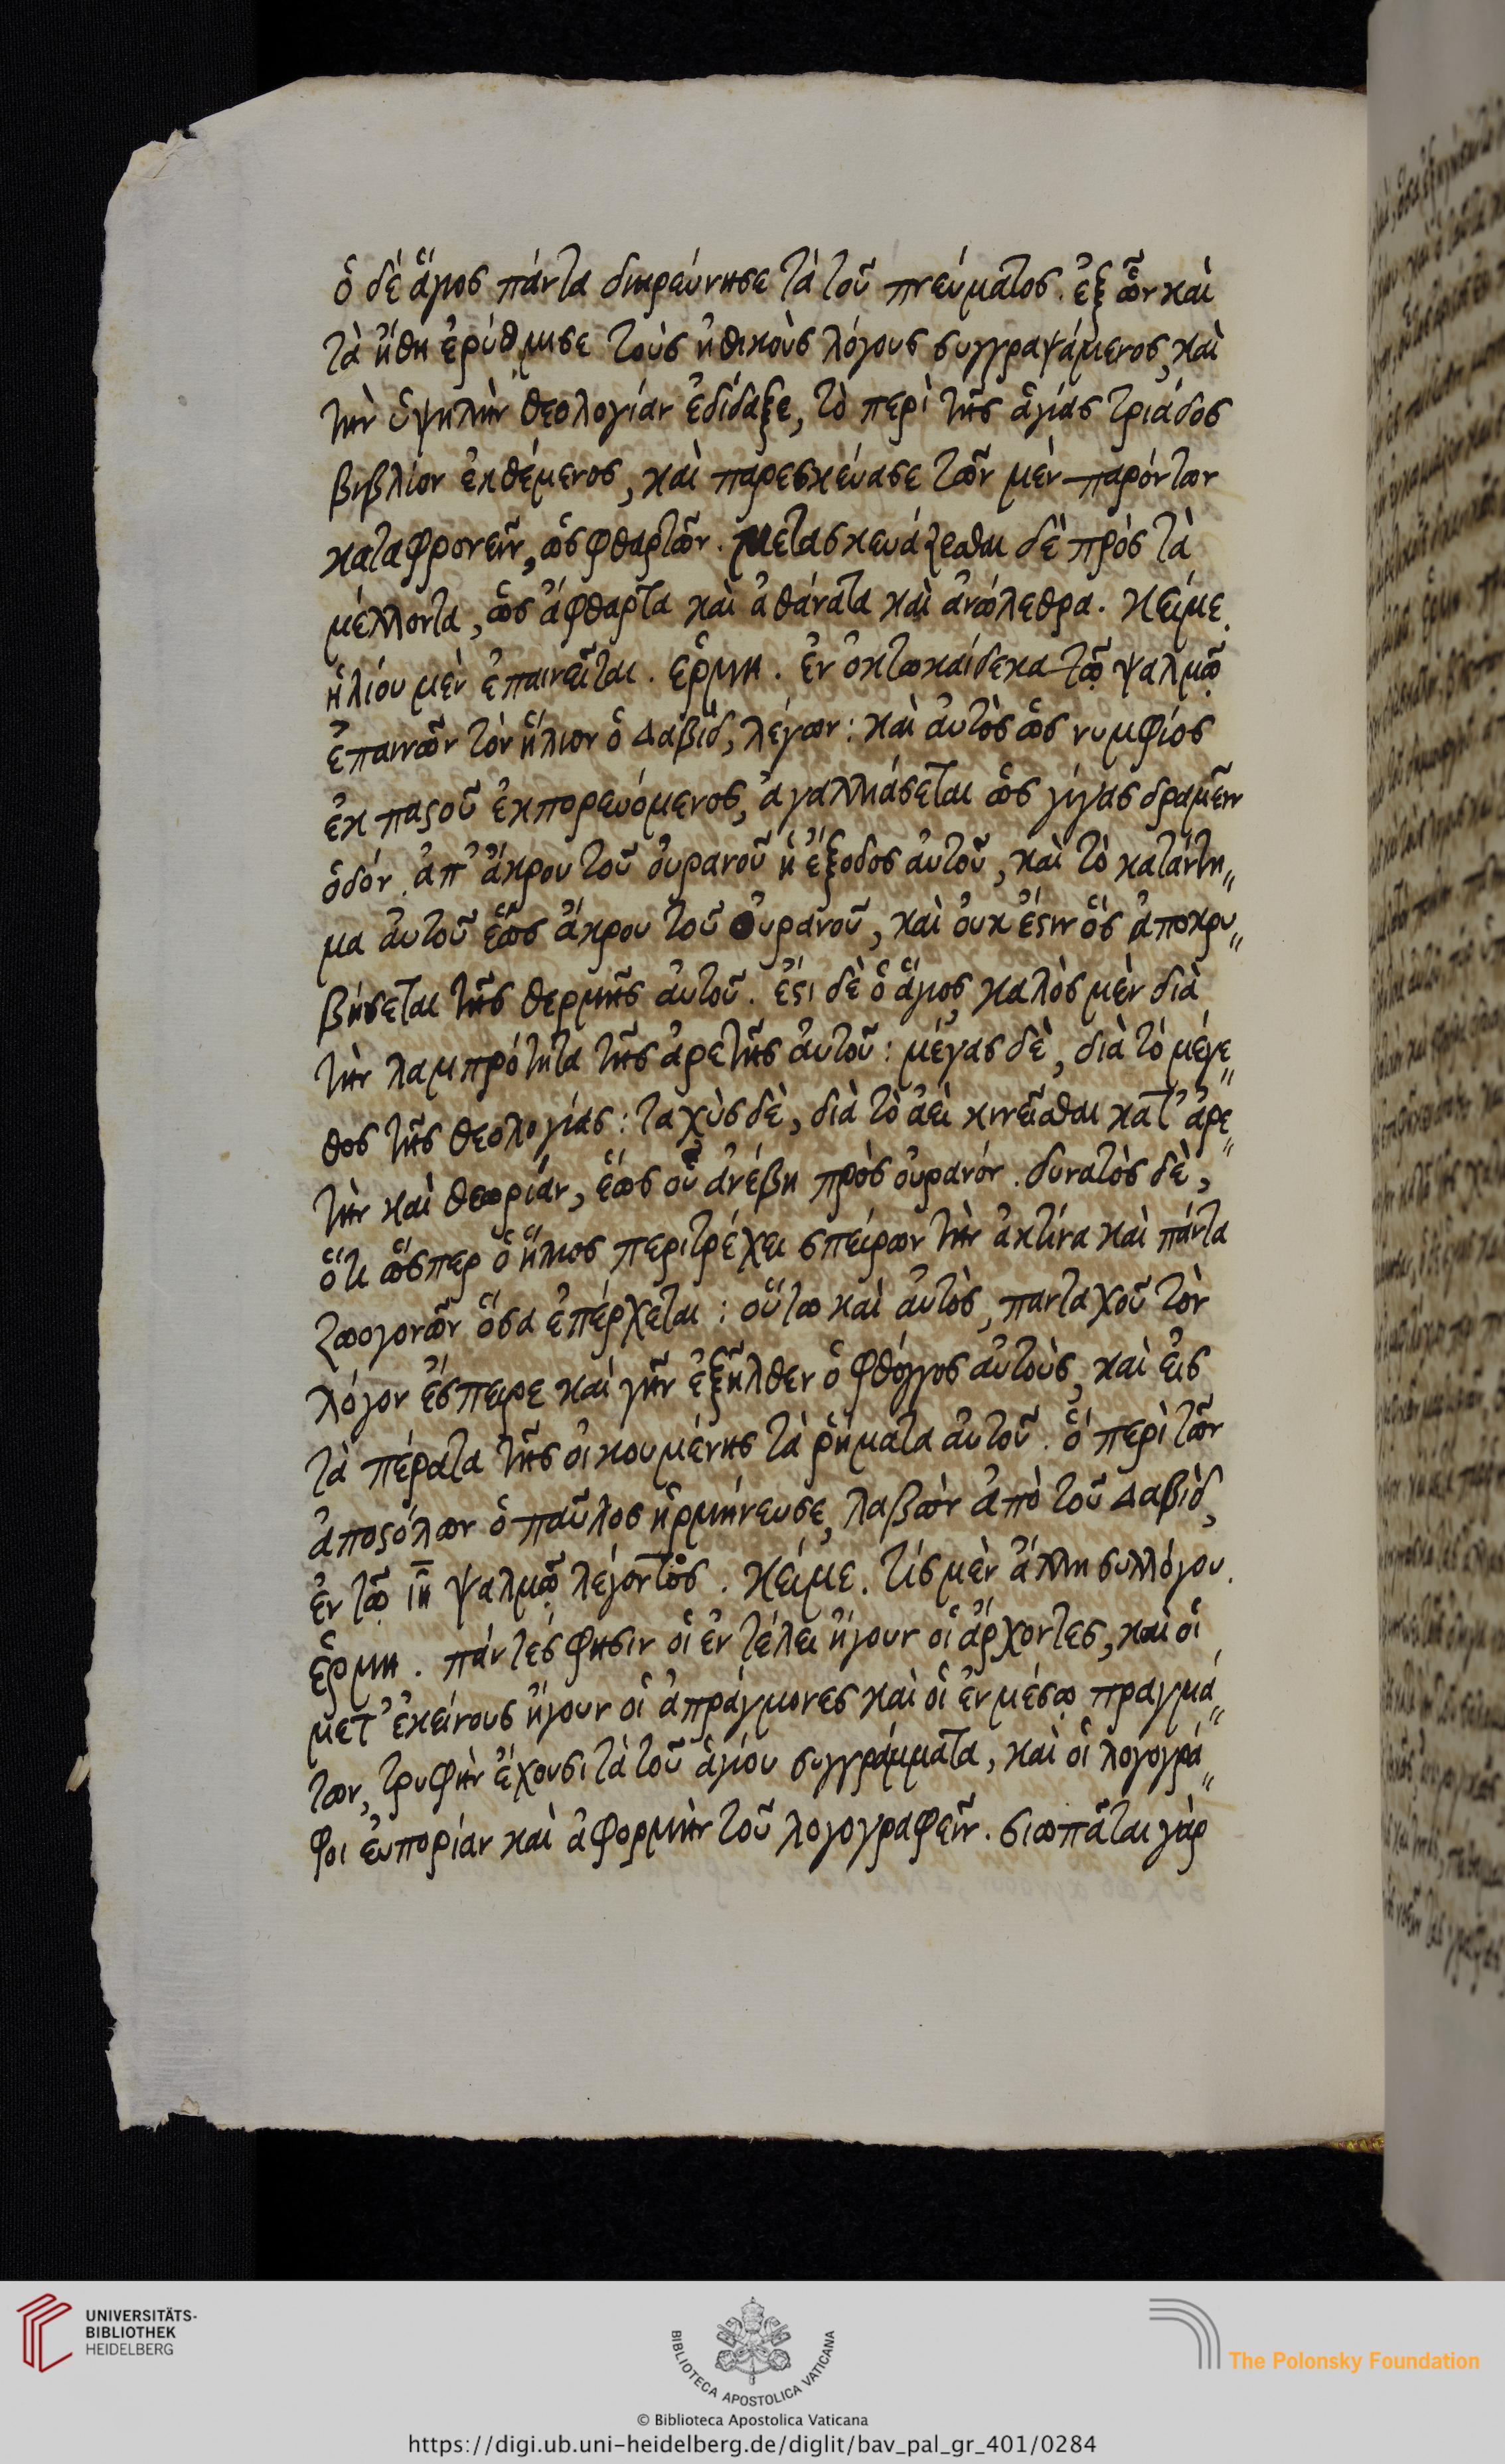 ὁ δὲ ἅγιος πάντα διηρεύνησε τὰ τοῦ πνεύματος. ἐξ ὧν καὶ
τὰ ἤθη ἐρύθμισε τοὺς ἠθικοὺς λόγους συγγραψάμενος, καὶ
τὴν ὑψηλὴν θεολογίαν ἐδίδαξε, τὸ περὶ τῆς ἁγίας τριάδος
βιβλίον ἐκθέμενος, καὶ παρεσκεύασε τῶν μὲν παρόντων
καταφρονεῖν, ὡς φθαρτῶν. μετασκευάζεσθαι δὲ πρὸς τὰ
μέλλοντα, ὡς ἄφθαρτα καὶ ἀθάνατα καὶ ἀνώλεθρα. κείμε.
ἡλίου μὲν ἐπαινεῖται. ἑρμη. ἐν ὀκτωκαίδεκα τῷ ψαλμῷ
ἐπαινῶν τὸν ἥλιον ὁ Δαβὶδ, λέγων: καὶ αὐτὸς ὡς νυμφίος
ἐκ παστοῦ ἐκπορευόμενος, ἀγαλλιάσεται ὡς γίγας δραμεῖν
ὁδόν. ἀπ' ἄκρου τοῦ οὐρανοῦ ἡ ἔξοδος αὐτοῦ, καὶ τὸ κατάντη〃
μα αὐτοῦ ἕως ἄκρου τοῦ οὐρανοῦ, καὶ οὐκ ἔστιν ὃς ἀποκρυ〃
βήσεται τῆς θερμῆς αὐτοῦ. ἔστι δὲ ὁ ἅγιος καλὸς μὲν διὰ
τὴν λαμπρότητα τῆς ἀρετῆς αὐτοῦ: μέγας δὲ, διὰ τὸ μέγε〃
θος τῆς θεολογίας: ταχὺς δὲ, διὰ τὸ ἀεὶ κινεῖσθαι κατ' ἀρε〃
τὴν καὶ θεωρίαν, ἕως οὗ ἀνέβη πρὸς οὐρανόν. δυνατὸς δὲ,
ὅτι ὥσπερ ὁ ἥλιος περιτρέχει σπείρων τὴν ἀκτίνα καὶ πάντα
ζωογονῶν ὅσα ἐπέρχεται: οὕτω καὶ αὐτὸς, πανταχοῦ τὸν
λόγον ἔσπειρε καὶ γῆν ἐξῆλθεν ὁ φθόγγος αὐτοὺς, καὶ εἰς
τὰ πέρατα τῆς οἰκουμένης τὰ ῥήματα αὐτοῦ. ὃ περὶ τῶν
ἀποστόλων ὁ παῦλος ἡρμήνευσε, λαβὼν ἀπὸ τοῦ Δαβὶδ,
ἐν τῷ ιη ψαλμῷ λέγοντος. κείμε. τίς μὲν ἄλλη συλλόγου.
ἑρμη. πάντές φησιν οἱ ἐν τέλει ἤγουν οἱ ἄρχοντες, καὶ οἱ
μετ' ἐκείνους ἤγουν οἱ ἀπράγμονες καὶ οἱ ἐν μέσῳ πραγμά〃
των, τρυφὴν ἔχουσι τὰ τοῦ ἁγίου συγγράμματα, καὶ οἱ λογογρά〃
φοι εὐπορίαν καὶ ἀφορμὴν τοῦ λογογραφεῖν. σιωπᾶται γὰρ
UNIVERSITÄTS-
BIBLIOTHEK
HEIDELBERG
BIBLIOTECA APOSTOLICA VATICANA
The Polonsky Foundation
© Biblioteca Apostolica Vaticana
https://digi.ub.uni-heidelberg.de/diglit/bav_pal_gr_401/0284